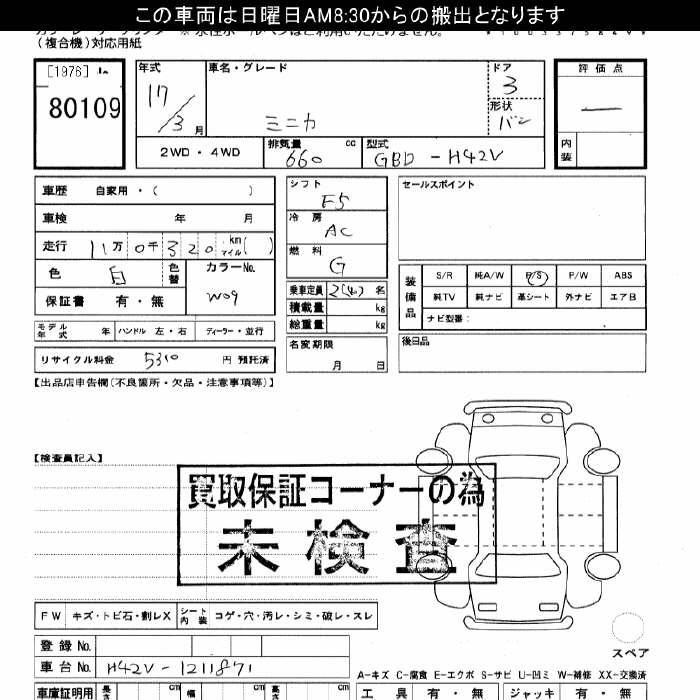 この車両は日曜日AM8:30からの搬出となります
(複合機)対応用紙
[1976]
80109
年式 17/3月
車名・グレード ミニカ
ドア 3
形状 バン
評価点 —
内装
2WD・4WD
排気量 660 cc
型式 GBD-H42V
車歴 自家用・( )
車検 年 月
走行 11万0千320 km マイル( )
色 白 色替
カラーNo. W09
保証書 有・無
シフト F5
冷房 AC
燃料 G
乗車定員 2(4)名
積載量 kg
総重量 kg
セールスポイント
装備品 S/R 純A/W P/S P/W ABS
純TV 純ナビ 革シート 外ナビ エアB
ナビ型番:
モデル年式 年 ハンドル 左・右 ディーラー・並行
名変期限 月 日
後日品
リサイクル料金 5310 円 預託済
【出品店申告欄(不良箇所・欠品・注意事項等)】
【検査員記入】
買取保証コーナーの為
未検査
FW キズ・トビ石・割レX シート内装 コゲ・穴・汚レ・シミ・破レ・スレ
スペア
登録No.
車台No. H42V-1211871
A-キズ C-腐食 E-エクボ S-サビ U-凹ミ W-補修 XX-交換済
車庫証明用 長さ cm 幅 cm 高さ cm
工具 有・無 ジャッキ 有・無